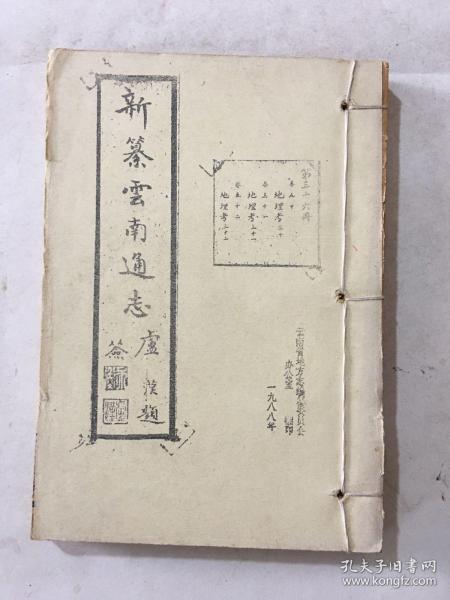 新纂雲南通志
盧漢題
簽
第三十六冊
地理考二十
地理考二十一
地理考二十二
云南省地方志編纂委員会
办公室 翻印
一九八八年
孔夫子旧书网
www.kongfz.com